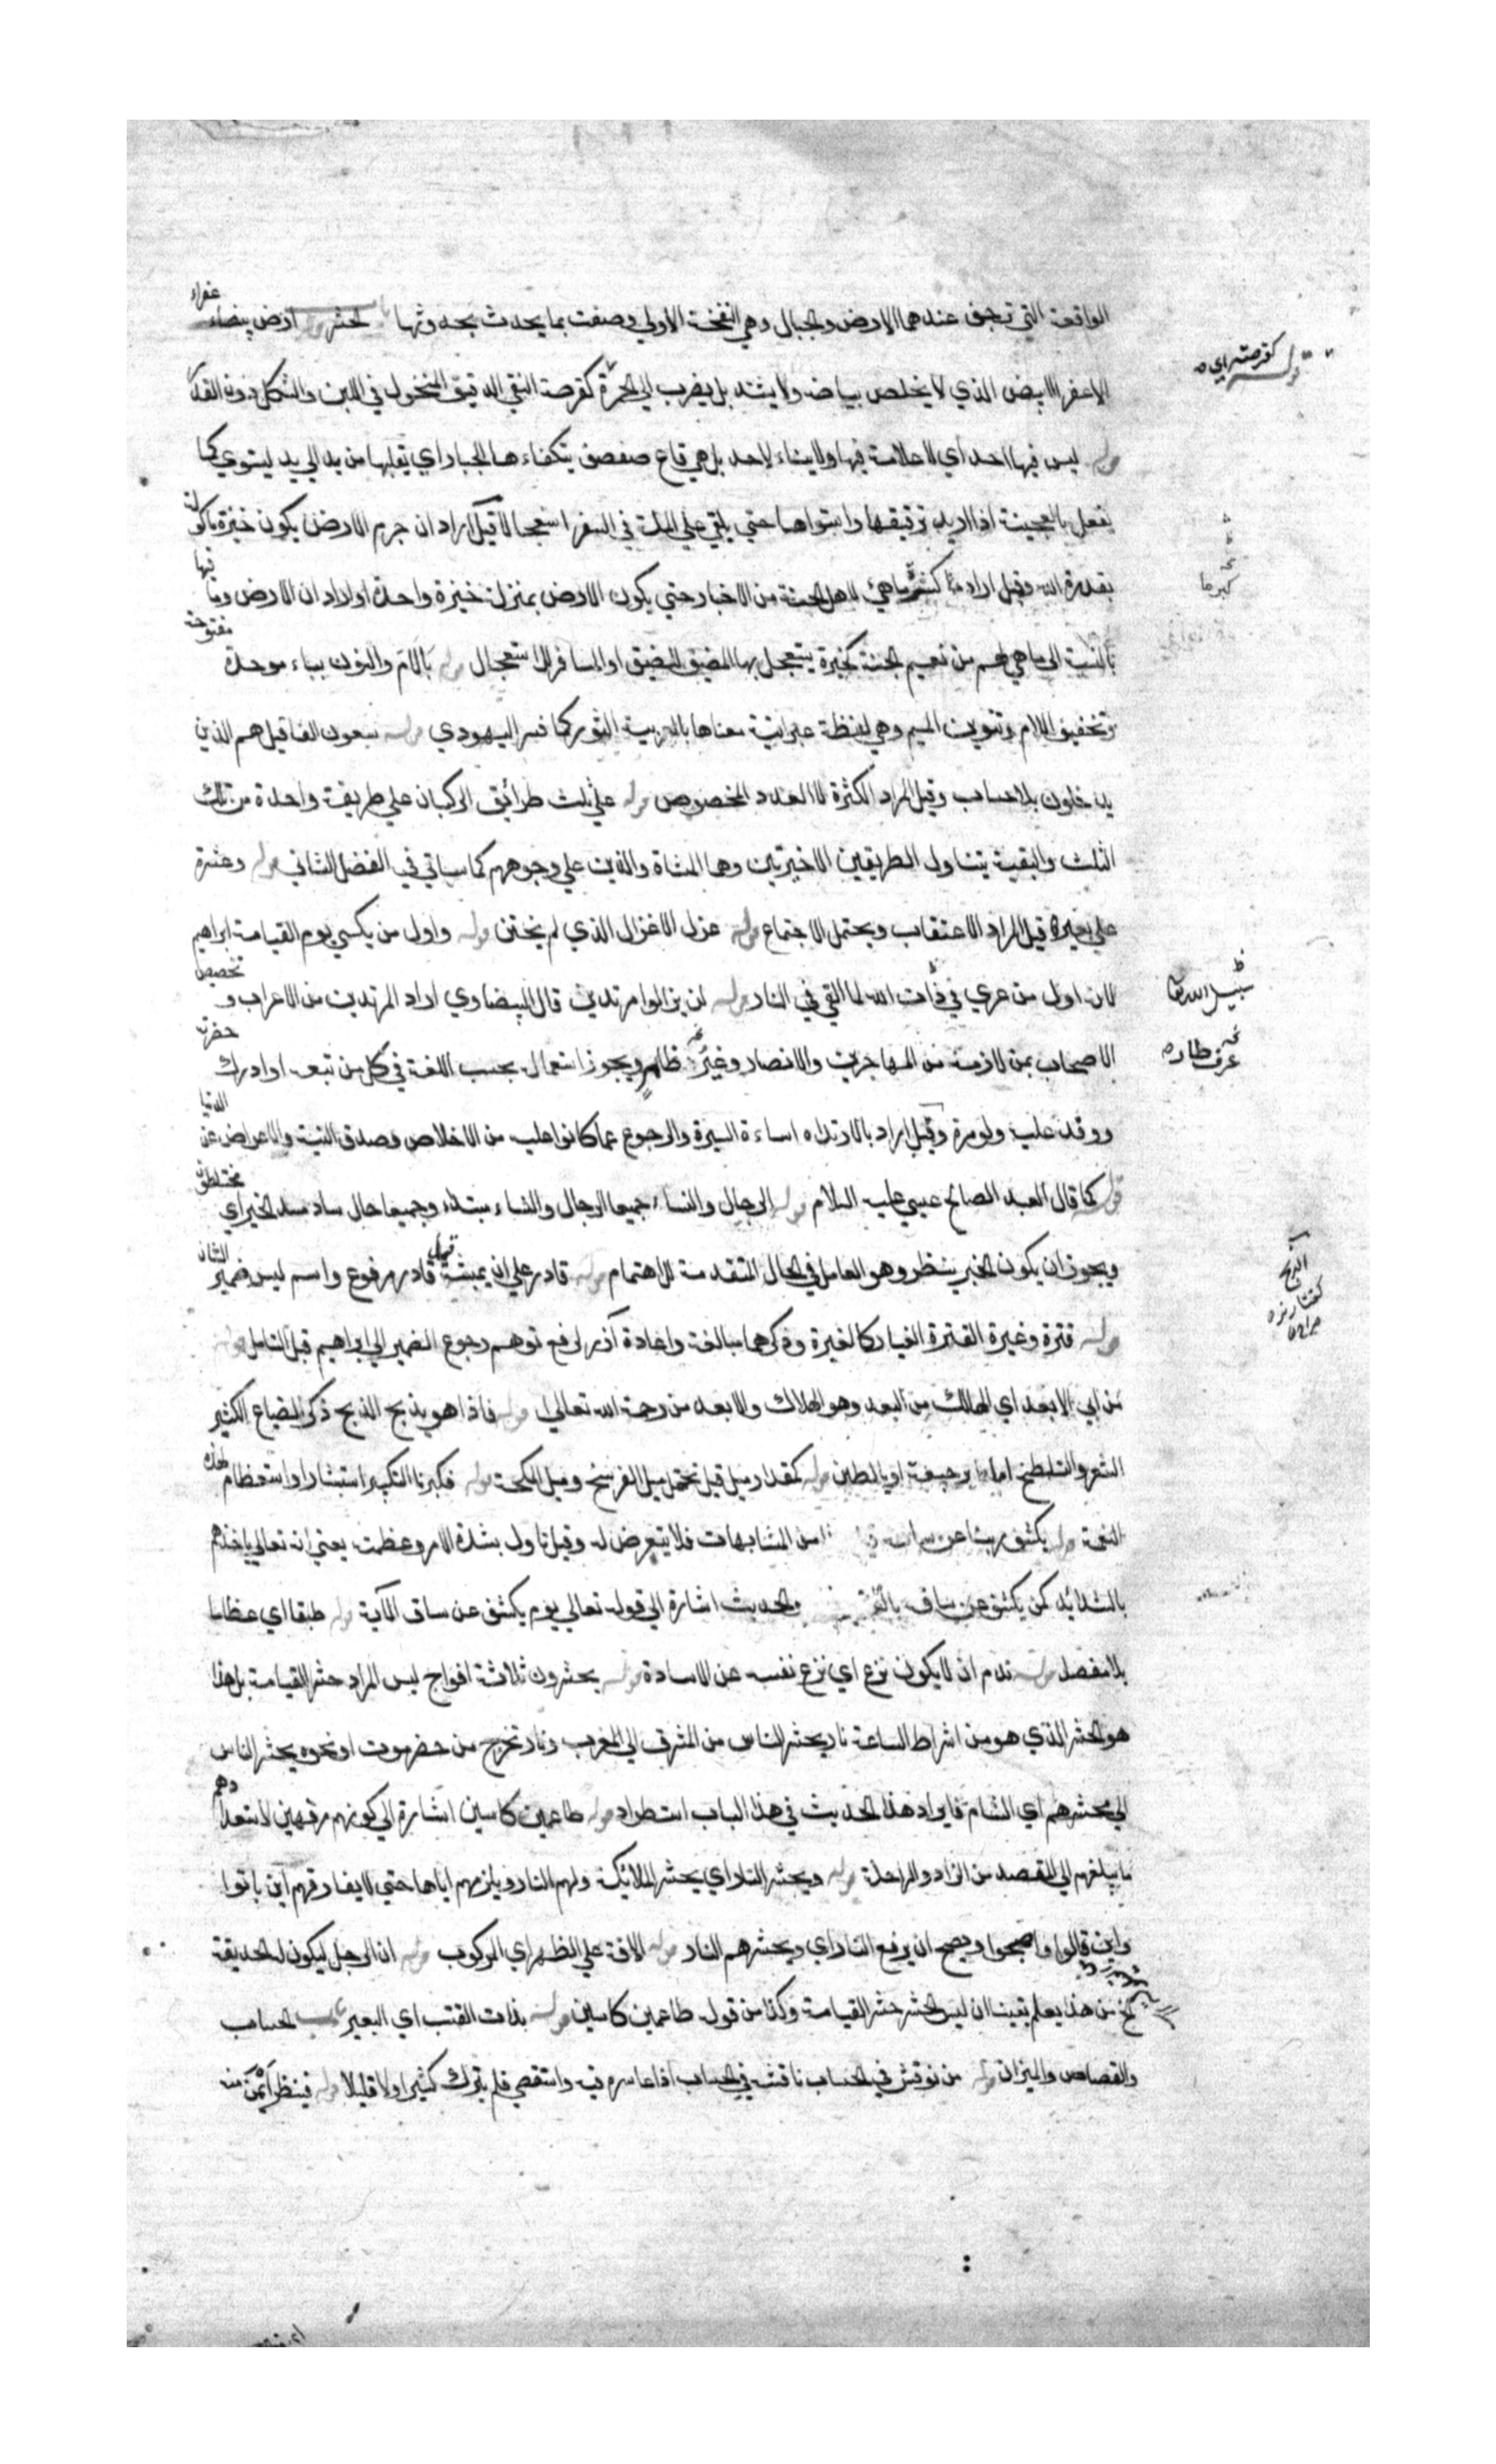 الواقعة التي ترجف عندهما الارض والجبال وهي النفخة الاولي وصفت بما يحدث بحدوثها الحشر قوله ارض بيضاء عفراء
الاعفر الابيض الذي لا يخلص بياضه ولا يشتد بل يضرب الي الحمرة كقرصة النقي الدقيق المنخول في اللين والشكل دون القدر
قوله كقرصة اي
قوله ليس فيها احد اي لا علامة فيها ولا بناء لاحد بل هي قاع صفصف يتكفاءها الجبار اي يقلبها من يد الي يد ليستوي كما
يفعل بالعجينة اذا اريد ترقيقها واستواها حتي يلقي علي الملة في السفر استعجالا قيل اراد ان جرم الارض يكون خبزة ماكولة
بقدرة الله وقيل اراد كثير ما هئ لاهل الجنة من الاخباز حتي يكون الارض بمنزلة خبزة واحدة او اراد ان الارض وما فيها
بالنسبة الي ما هي لهم من نعيم الجنة كخبزة يتعجل بها المضيق للضيق او المسافر للاستعجال قوله بالام والنون بباء موحدة مفتوحة
وتخفيف اللام وتنوين الميم وهي لفظة عبرانية معناها بالعربية الثور كما فسر اليهودي قوله سبعون الفا قيل هم الذين
يدخلون بلا حساب وقيل المراد الكثرة لا العدد المخصوص قوله علي ثلث طرائق الركبان علي طريقة واحدة من تلك
الثلث والبقية يتناول الطريقين الاخيرتين وهما المشاة والذين علي وجوههم كما سياتي في الفصل الثاني قوله وعشرة
علي بعير قيل المراد الاعتقاب ويحتمل الاجتماع قوله غرلا الاغرل الذي لم يختن قوله واول من يكسي يوم القيامة ابراهيم
لانه اول من عري في ذات الله لما القي في النار قوله لن يزالوا مرتدين قال البيضاوي اراد المرتدين من الاعراب و تخصيص
سبيل الله تعا
الاصحاب بمن لازمه من المهاجرين والانصار وغيره ظاهر ويجوز استعماله بحسب اللغة في كل من تبعه او ادرك حضرته
عرف طاره
ووفد عليه ولو مرة وقيل اراد بالارتداد اساءة السيرة والرجوع عما كانوا عليه من الاخلاص وصدق النية والاعراض عن الدنيا
قوله كما قال العبد الصالح عيسي عليه السلام قوله الرجال والنساء جميعا الرجال والنساء مبتداء وجميعا حال ساد مسد الخبر اي مختلطون
ويجوز ان يكون الخبر ينظر وهو العامل في الحال المتقدمة للاهتمام قوله قادر علي ان يمشيه قوله قادر مرفوع واسم ليس ضمير الشان
قوله قترة وغبرة القترة الغبار كالغبرة وذكرهما مبالغة واعادة آزر لرفع توهم رجوع الضمير الي ابراهيم قبل التامل قوله
من ابي الابعد اي الهالك من البعد وهو الهلاك والابعد من رحمة الله تعالي قوله فاذا هو بذيخ الذيخ ذكر الضباع الكثير
الشعر والتلطخ اما برجيعه او بالطين قوله كمقدار ميل قيل تحتمل ميل الفرسخ وميل المكحلة قوله فكبرنا التكبير استبشارا واستعظام لهذه
النعمة قوله يكشف ربنا عن ساقه من المتشابهات فلا يتعرض له وقيل تاول بشدة الامر وعظمته يعني انه تعالي ياخذهم
بالشدائد كمن يكشف عن ساقه والحديث اشارة الي قوله تعالي يوم يكشف عن ساق الآية قوله طبقا اي عظاما
بلا مفصل قوله ندم ان لا يكون نزع اي نزع نفسه عن الاساءة قوله يحشرون ثلاثة افواج ليس المراد حشر القيامة بل هذا
هو الحشر الذي هو من اشراط الساعة نار يحشر الناس من المشرق الي المغرب ونار تخرج من حضرموت او نحوه يحشر الناس
الي محشرهم اي الشام فايراد هذا الحديث في هذا الباب استطراد قوله طاعمين كاسين اشارة الي كونهم مرفهين لاستعدادهم
ما يبلغهم الي المقصد من الزاد والراحلة قوله ويحشر النار اي يحشر الملائكة ولهم النار ويلزمهم اياها حتي لا يفارقهم اين باتوا
واين قالوا واصبحوا ويصح ان يرفع النار اي ويحشرهم النار قوله الافة علي الظهر اي المركوب قوله ان الرجل ليكون له الحديقة
الخ من هذا يعلم يقينا ان ليس الحشر حشر القيامة وكذا من قوله طاعمين كاسين قوله بذات القتب اي البعير باب الحساب
والقصاص والميزان قوله من نوقش في الحساب ناقشه في الحساب اذا عاسره فيه واستقصي فلم يترك كثيرا ولا قليلا قوله فينظر ايمن منه